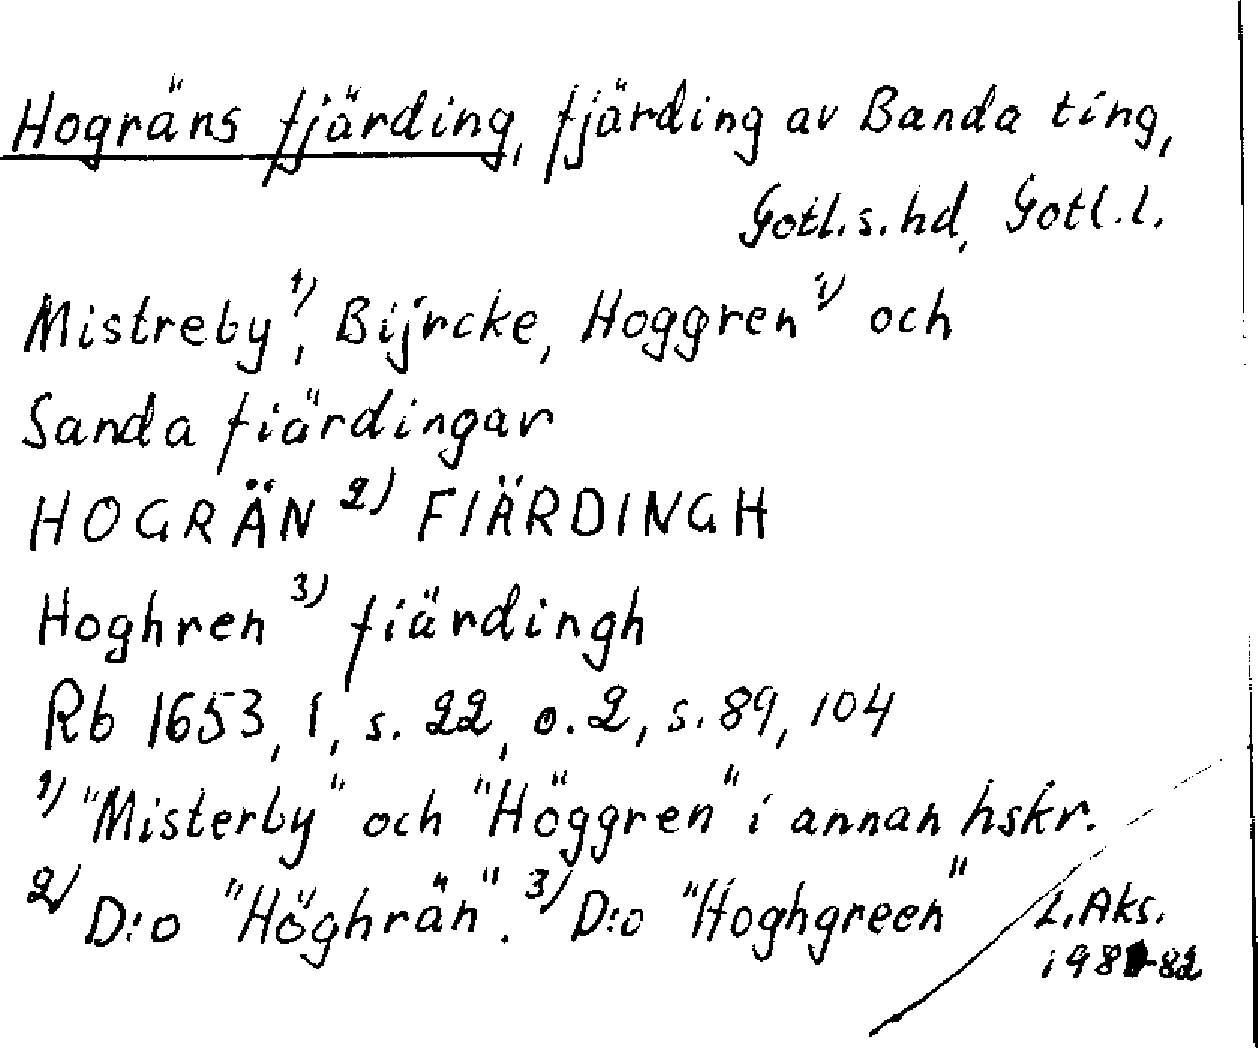 Hogräns fjärding, fjärding av Banda ting,
Gotl.s.hd, Gotl.l.
Mistreby 1), Bijrcke, Hoggren 1) och
Sanda fiärdingar
HOGRÄN 2) FIÄRDINGH
Hoghren 3) fiärdingh
Rb 1653, 1, s. 22, o. 2, s. 89, 104
1) "Misterby" och "Höggren" i annan hskr.
2) D:o "Höghrän". 3) D:o "Hoghgreen"
L. Aks.
1981-82